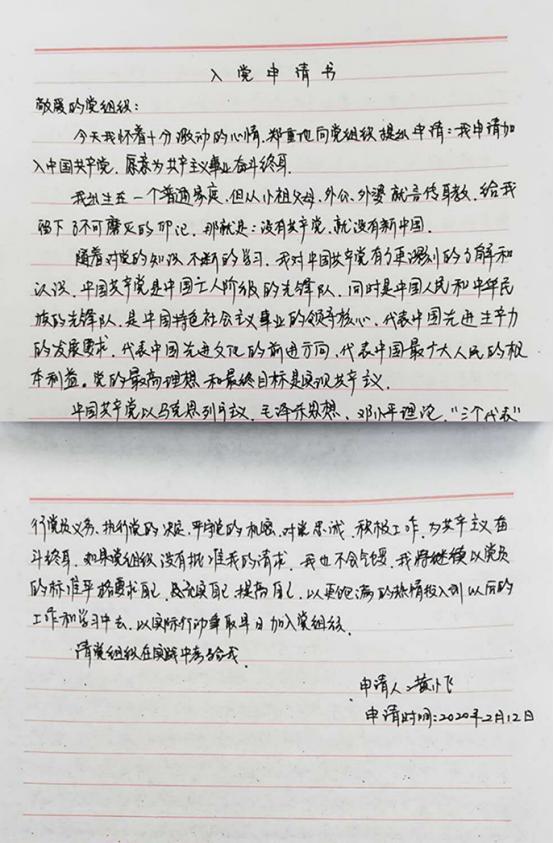 入党申请书
敬爱的党组织：
今天我怀着十分激动的心情，郑重地向党组织提出申请：我申请加
入中国共产党，愿意为共产主义事业奋斗终身。
我出生在一个普通家庭，但从小祖父母、外公、外婆就言传身教，给我
留下了不可磨灭的印记，那就是：没有共产党，就没有新中国。
随着对党的知识不断的学习，我对中国共产党有了更深刻的了解和
认识。中国共产党是中国工人阶级的先锋队，同时是中国人民和中华民
族的先锋队，是中国特色社会主义事业的领导核心，代表中国先进生产力
的发展要求，代表中国先进文化的前进方向，代表中国最广大人民的根
本利益。党的最高理想和最终目标是实现共产主义。
中国共产党以马克思列宁主义、毛泽东思想、邓小平理论、“三个代表”
行党员义务，执行党的决定，严守党的机密，对党忠诚，积极工作，为共产主义奋
斗终身。如果党组织没有批准我的请求，我也不会气馁，我将继续以党员
的标准严格要求自己，充实自己，提高自己，以更饱满的热情投入到以后的
工作和学习中去，以实际行动争取早日加入党组织。
请党组织在实践中考验我。
申请人：黄小飞
申请时间：2020年2月12日